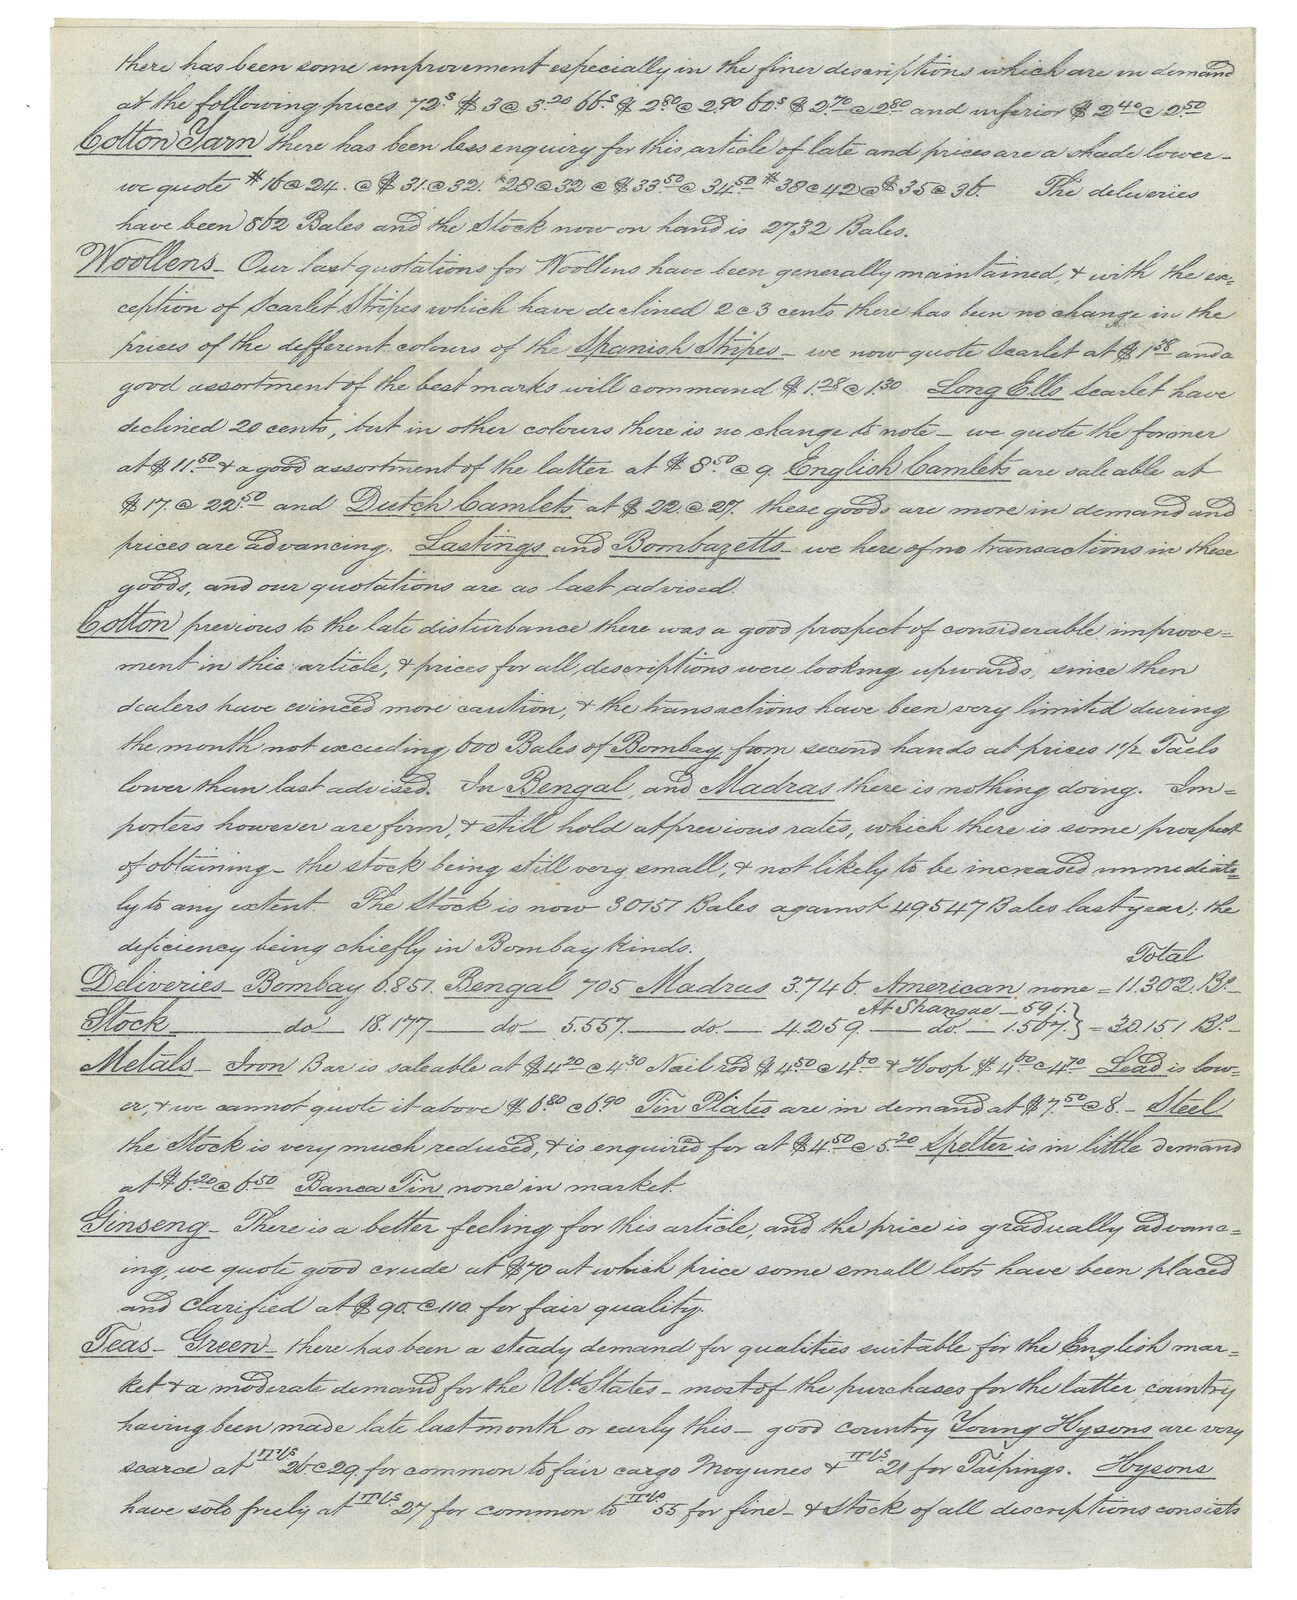 there has been some improvement especially in the finer descriptions which are in demand
at the following prices 72.s $3 @ 3.20 66.s $2.80 @ 2.90 60.s $2.70 @ 2.80 and inferior $2.40 @ 2.50
Cotton Yarn there has been less enquiry for this article of late and prices are a shade lower –
we quote # 16 @ 24. @ $31. @ 32. # 28 @ 32 @ $33.50 @ 34.50 # 38 @ 42 @ $35 @ 36. The deliveries
have been 862 Bales and the Stock now on hand is 2732 Bales.
Woollens – Our last quotations for Woollens have been generally maintained, & with the ex=
ception of Scarlet Stripes which have declined 2 @ 3 cents there has been no change in the
prices of the different colours of the Spanish Stripes – we now quote Scarlet at $1.38 and a
good assortment of the best marks will command $1.28 @ 1.30 Long Ells Scarlet have
declined 20 cents, but in other colours there is no change to note – we quote the former
at $11.50 & a good assortment of the latter at $8.50 @ 9. English Camlets are saleable at
$17. @ 22.50 and Dutch Camlets at $22. @ 27. these goods are more in demand and
prices are advancing. Lastings and Bombazetts – we here of no transactions in these
goods, and our quotations are as last advised.
Cotton previous to the late disturbance there was a good prospect of considerable improve=
ment in this article, & prices for all descriptions were looking upwards, since then
dealers have evinced more caution, & the transactions have been very limited during
the month not exceeding 600 Bales of Bombay from second hands at prices 1 1/2 Taels
lower than last advised. In Bengal and Madras there is nothing doing. Im=
porters however are firm, & still hold at previous rates, which there is some prospect
of obtaining – the stock being still very small, & not likely to be increased immediate=
ly to any extent The Stock is now 30151 Bales against 49547 Bales last year; the
deficiency being chiefly in Bombay kinds.
Total
Deliveries – Bombay 6.851. Bengal 705 Madras 3.746. American none = 11.302. Bs –
At Shangae – 591.
Stock do 18.177 – do – 5.557. – do. – 4.259. – do – 1.567. } = 30.151 Bs –
Metals – Iron Bar is saleable at $4.20 @ 4.30 Nail rod $4.50 @ 4.60 & Hoop $4.60 @ 4.70 Lead is low=
er, & we cannot quote it above $6.80 @ 6.90 Tin Plates are in demand at $7.50 @ 8. – Steel
the Stock is very much reduced, & is enquired for at $4.50 @ 5.20 Spelter is in little demand
at $6.20 @ 6.50 Banca Tin none in market.
Ginseng – There is a better feeling for this article, and the price is gradually advanc=
ing, we quote good crude at $70 at which price some small lots have been placed
and clarified at $90. @ 110. for fair quality.
Teas – Green – there has been a steady demand for qualities suitable for the English mar=
ket & a moderate demand for the Ud States – most of the purchases for the latter country
having been made late last month or early this – good country Young Hysons are very
scarce at Tls 26 @ 29. for common to fair cargo Moyunes & Tls 21 for Taipings. Hysons
have sold freely at Tls 27 for common to Tls 55 for fine – & Stock of all descriptions consists